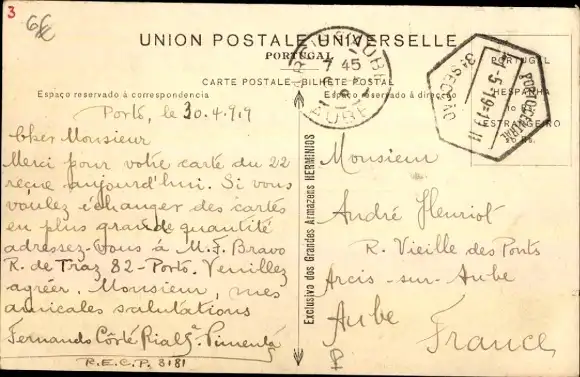 3
66
UNION POSTALE UNIVERSELLE
PORTUGAL
CARTE POSTALE-BILHETE POSTAL
Espaço reservado á correspondencia
Espaço reservado á direcção
PORTUGAL
HESPANHA
10 Rs.
ESTRANGEIRO
20 Rs.
ARCIS-S-AUBE
7 45
AUBE
3ª SECÇÃO
PORTO-CENTRAL
Porto, le 30.4.909
Cher Monsieur
Merci pour votre carte du 22
reçue aujourd'hui. Si vous
voulez échanger des cartes
en plus grande quantité
adressez-vous à M. F. Bravo
R. de Traz 82-Porto. Veuillez
agréer, Monsieur, mes
amicales salutations
Fernando Côrte Real Pimenta
R.E.C.P. 8181
Exclusivo dos Grandes Armazens HERMINIOS
Monsieur
André Henriot
R. Vieille des Ponts
Arcis-sur-Aube
Aube
France